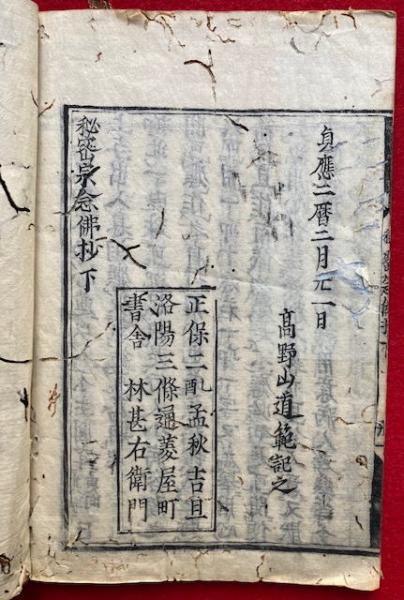 貞應二暦二月元一日
髙野山道範記之
正保二 孟秋吉旦
洛陽三條通菱屋町
書舎 林甚右衛門
秘密宗念佛抄 下